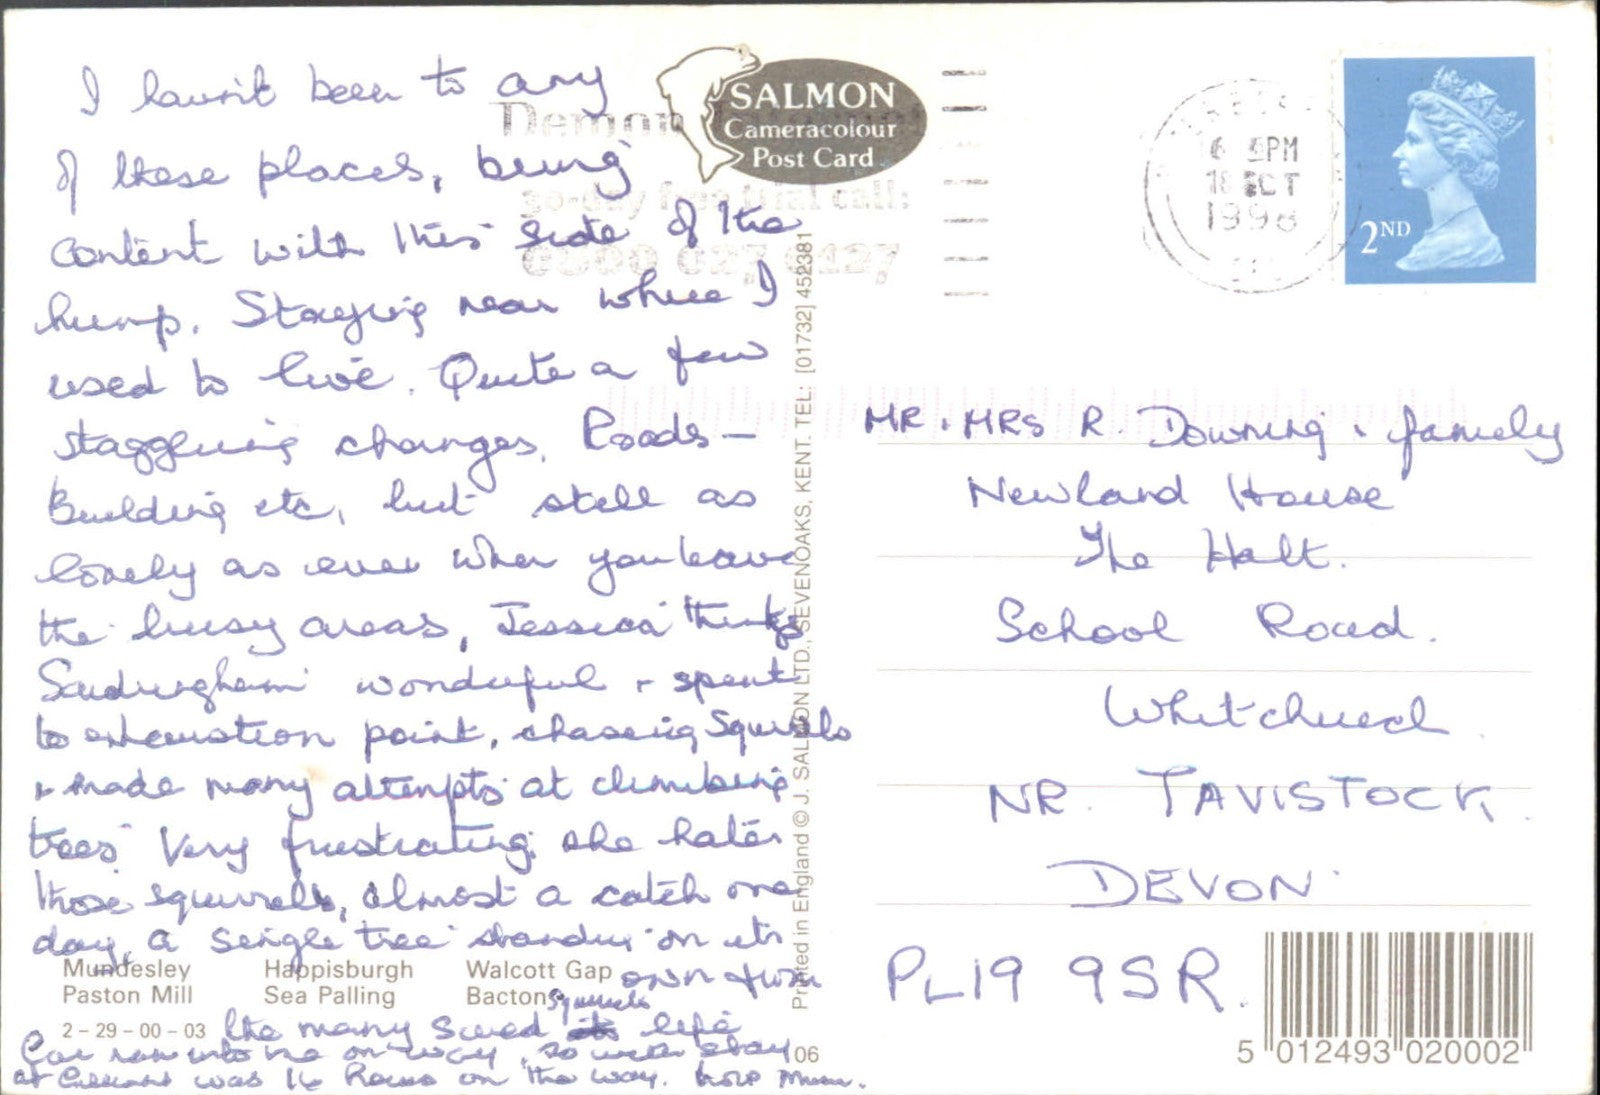 I havn't been to any
of these places, being
content with this side of the
hump. Staying near where I
used to live. Quite a few
staggering changes. Roads –
Building etc, but still as
lovely as ever when you leave
the busy areas, Jessica thinks
wonderful + spent
to exhaustion point, chasing Squirrels
+ made many attempts at climbing
trees Very frustrating, she hates
those squirrels, almost a catch one
day, a single tree standing on its
own from
the many saved squirrels life
Car ran into me on way, so with stay
at was 16 Hours on the way. love Mum.
SALMON
Cameracolour
Post Card
Demon
30-day free trial call:
PM
OCT
2ND
MR + MRS R. Downing + family
Newland House
The Halt.
School Road.
Whitchurch.
NR. TAVISTOCK.
DEVON
PL19 9SR.
Printed in England © J. SALMON LTD., SEVENOAKS, KENT. TEL: [01732] 452381
Mundesley Happisburgh Walcott Gap
Paston Mill Sea Palling Bacton
2 – 29 – 00 – 03
06
5 012493 020002